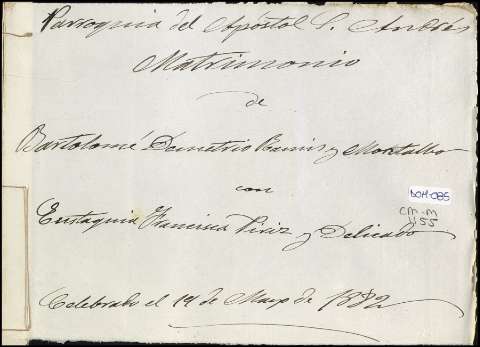 Parroquia del Apóstol S. Andrés
Matrimonio
de
Bartolomé Demetrio Ramis y Montalbo
con
Eustaquia Francisca Piriz y Delicado
Celebrado el 19 de Mayo de 1882
DOM-085
CM-M
1155